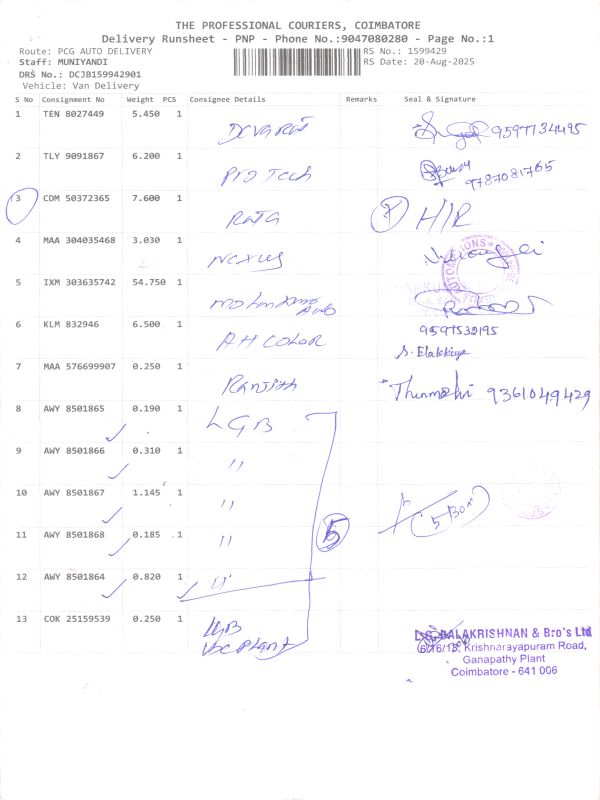 THE PROFESSIONAL COURIERS, COIMBATORE
Delivery Runsheet - PNP - Phone No.:9047080280 - Page No.:1
Route: PCG AUTO DELIVERY RS No.: 1599429
Staff: MUNIYANDI RS Date: 20-Aug-2025
DRS No.: DCJB159942901
Vehicle: Van Delivery
S No Consignment No Weight PCS Consignee Details Remarks Seal & Signature
1 TEN 8027449 5.450 1 9597134495
2 TLY 9091867 6.200 1 Pro Tech 9787081765
3 CDM 50372365 7.600 1 H/R
4 MAA 304035468 3.030 1 Nexus
5 IXM 303635742 54.750 1 Auto
6 KLM 832946 6.500 1 AH COLOR 9597532195
S. Elakkiya
7 MAA 576699907 0.250 1 Ranjith 9361049429
8 AWY 8501865 0.190 1 LGB
9 AWY 8501866 0.310 1 "
10 AWY 8501867 1.145 1 "
11 AWY 8501868 0.185 1 " 5
12 AWY 8501864 0.820 1 "
13 COK 25159539 0.250 1 LGB
L.G. BALAKRISHNAN & Bro's Ltd
6/16/13, Krishnarayapuram Road,
Ganapathy Plant
Coimbatore - 641 006